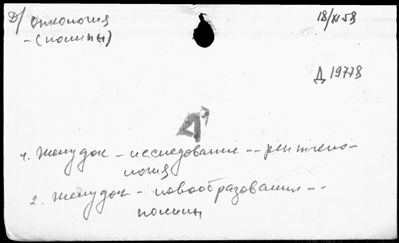 Д/ Онкология
18/XI 58
– (полипы)
Д 19778
Д
1. Желудок – исследование -- рентгено-
логия
2. Желудок – новообразования --
полипы